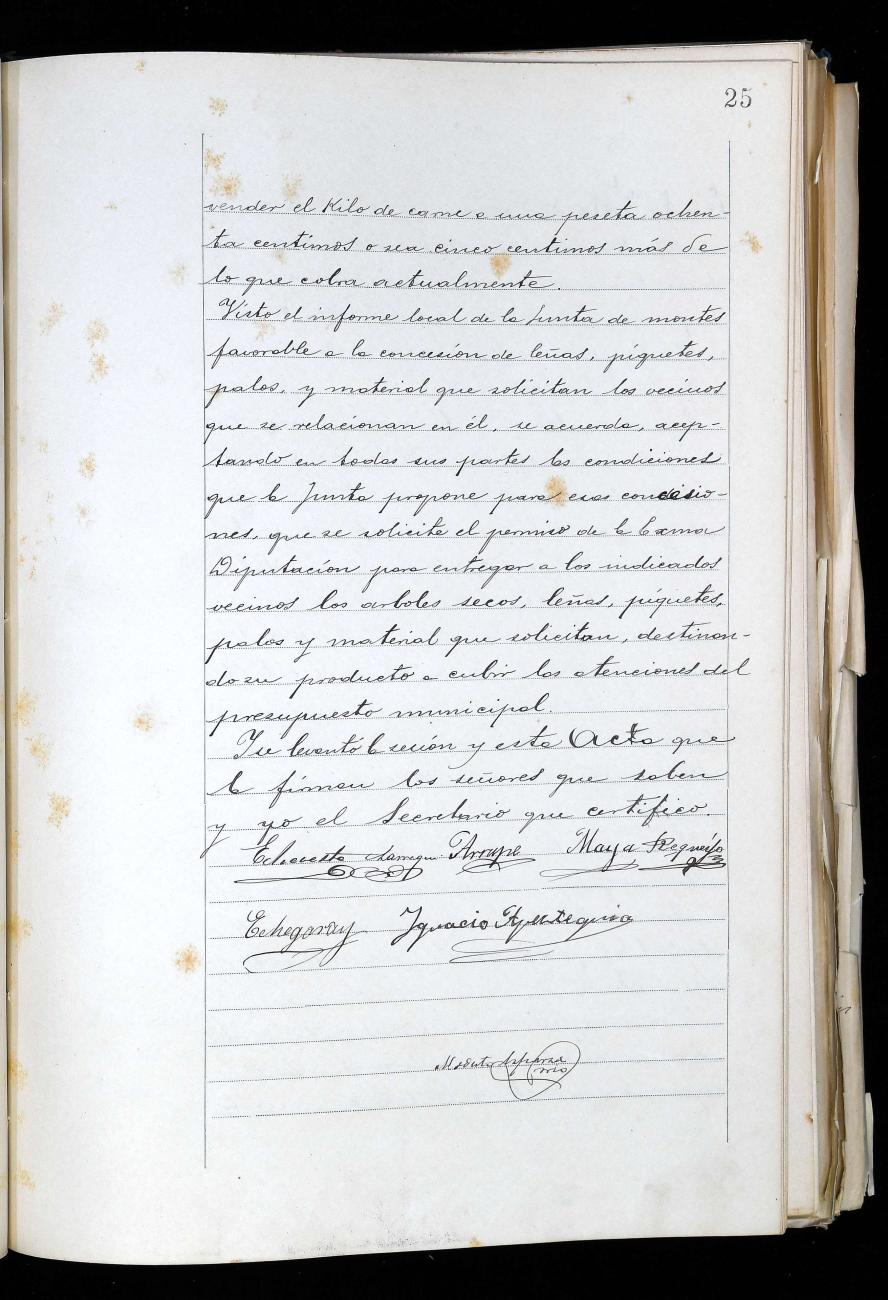 25
vender el Kilo de carne a una peseta ochen-
ta centimos o sea cinco centimos más de
lo que cobra actualmente.
Visto el informe local de la Junta de montes
favorable a la concesión de leñas, piquetes,
palos, y material que solicitan los vecinos
que se relacionan en él, se acuerda, acep-
tando en todas sus partes las condiciones
que la Junta propone para esas concesio-
nes, que se solicite el permiso de la Exma
Diputación para entregar a los indicados
vecinos los arboles secos, leñas, piquetes,
palos y material que solicitan, destinan-
do su producto a cubrir las atenciones del
presupuesto municipal.
Y se levantó la sesión y esta Acta que
la firman los señores que saben
y yo el Secretario que certifico.
Echavesta Larregui Arrupe Maya Requejo
Echegaray Ignacio